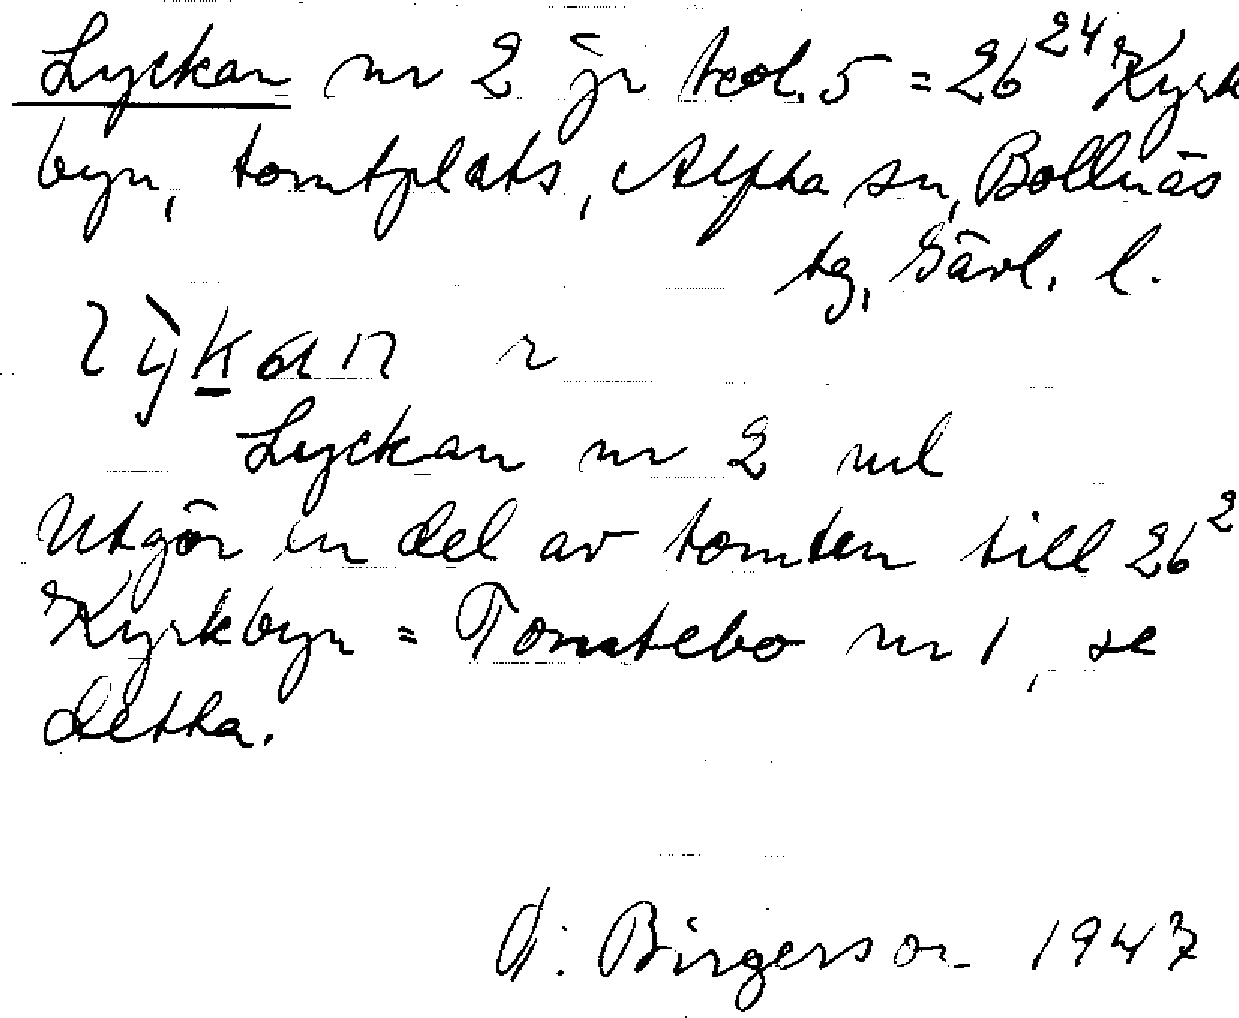 Lyckan nr 2 jr kol. 5 = 26²⁴ Kyrk
byn, tomtplats, Alfta sn, Bollnäs
tg, Gävl. l.
Lyckan nr 2 ul
Utgör en del av tomten till 26²
Kyrkbyn = Tomtebo nr 1, se
detta.
Birgerson 1947